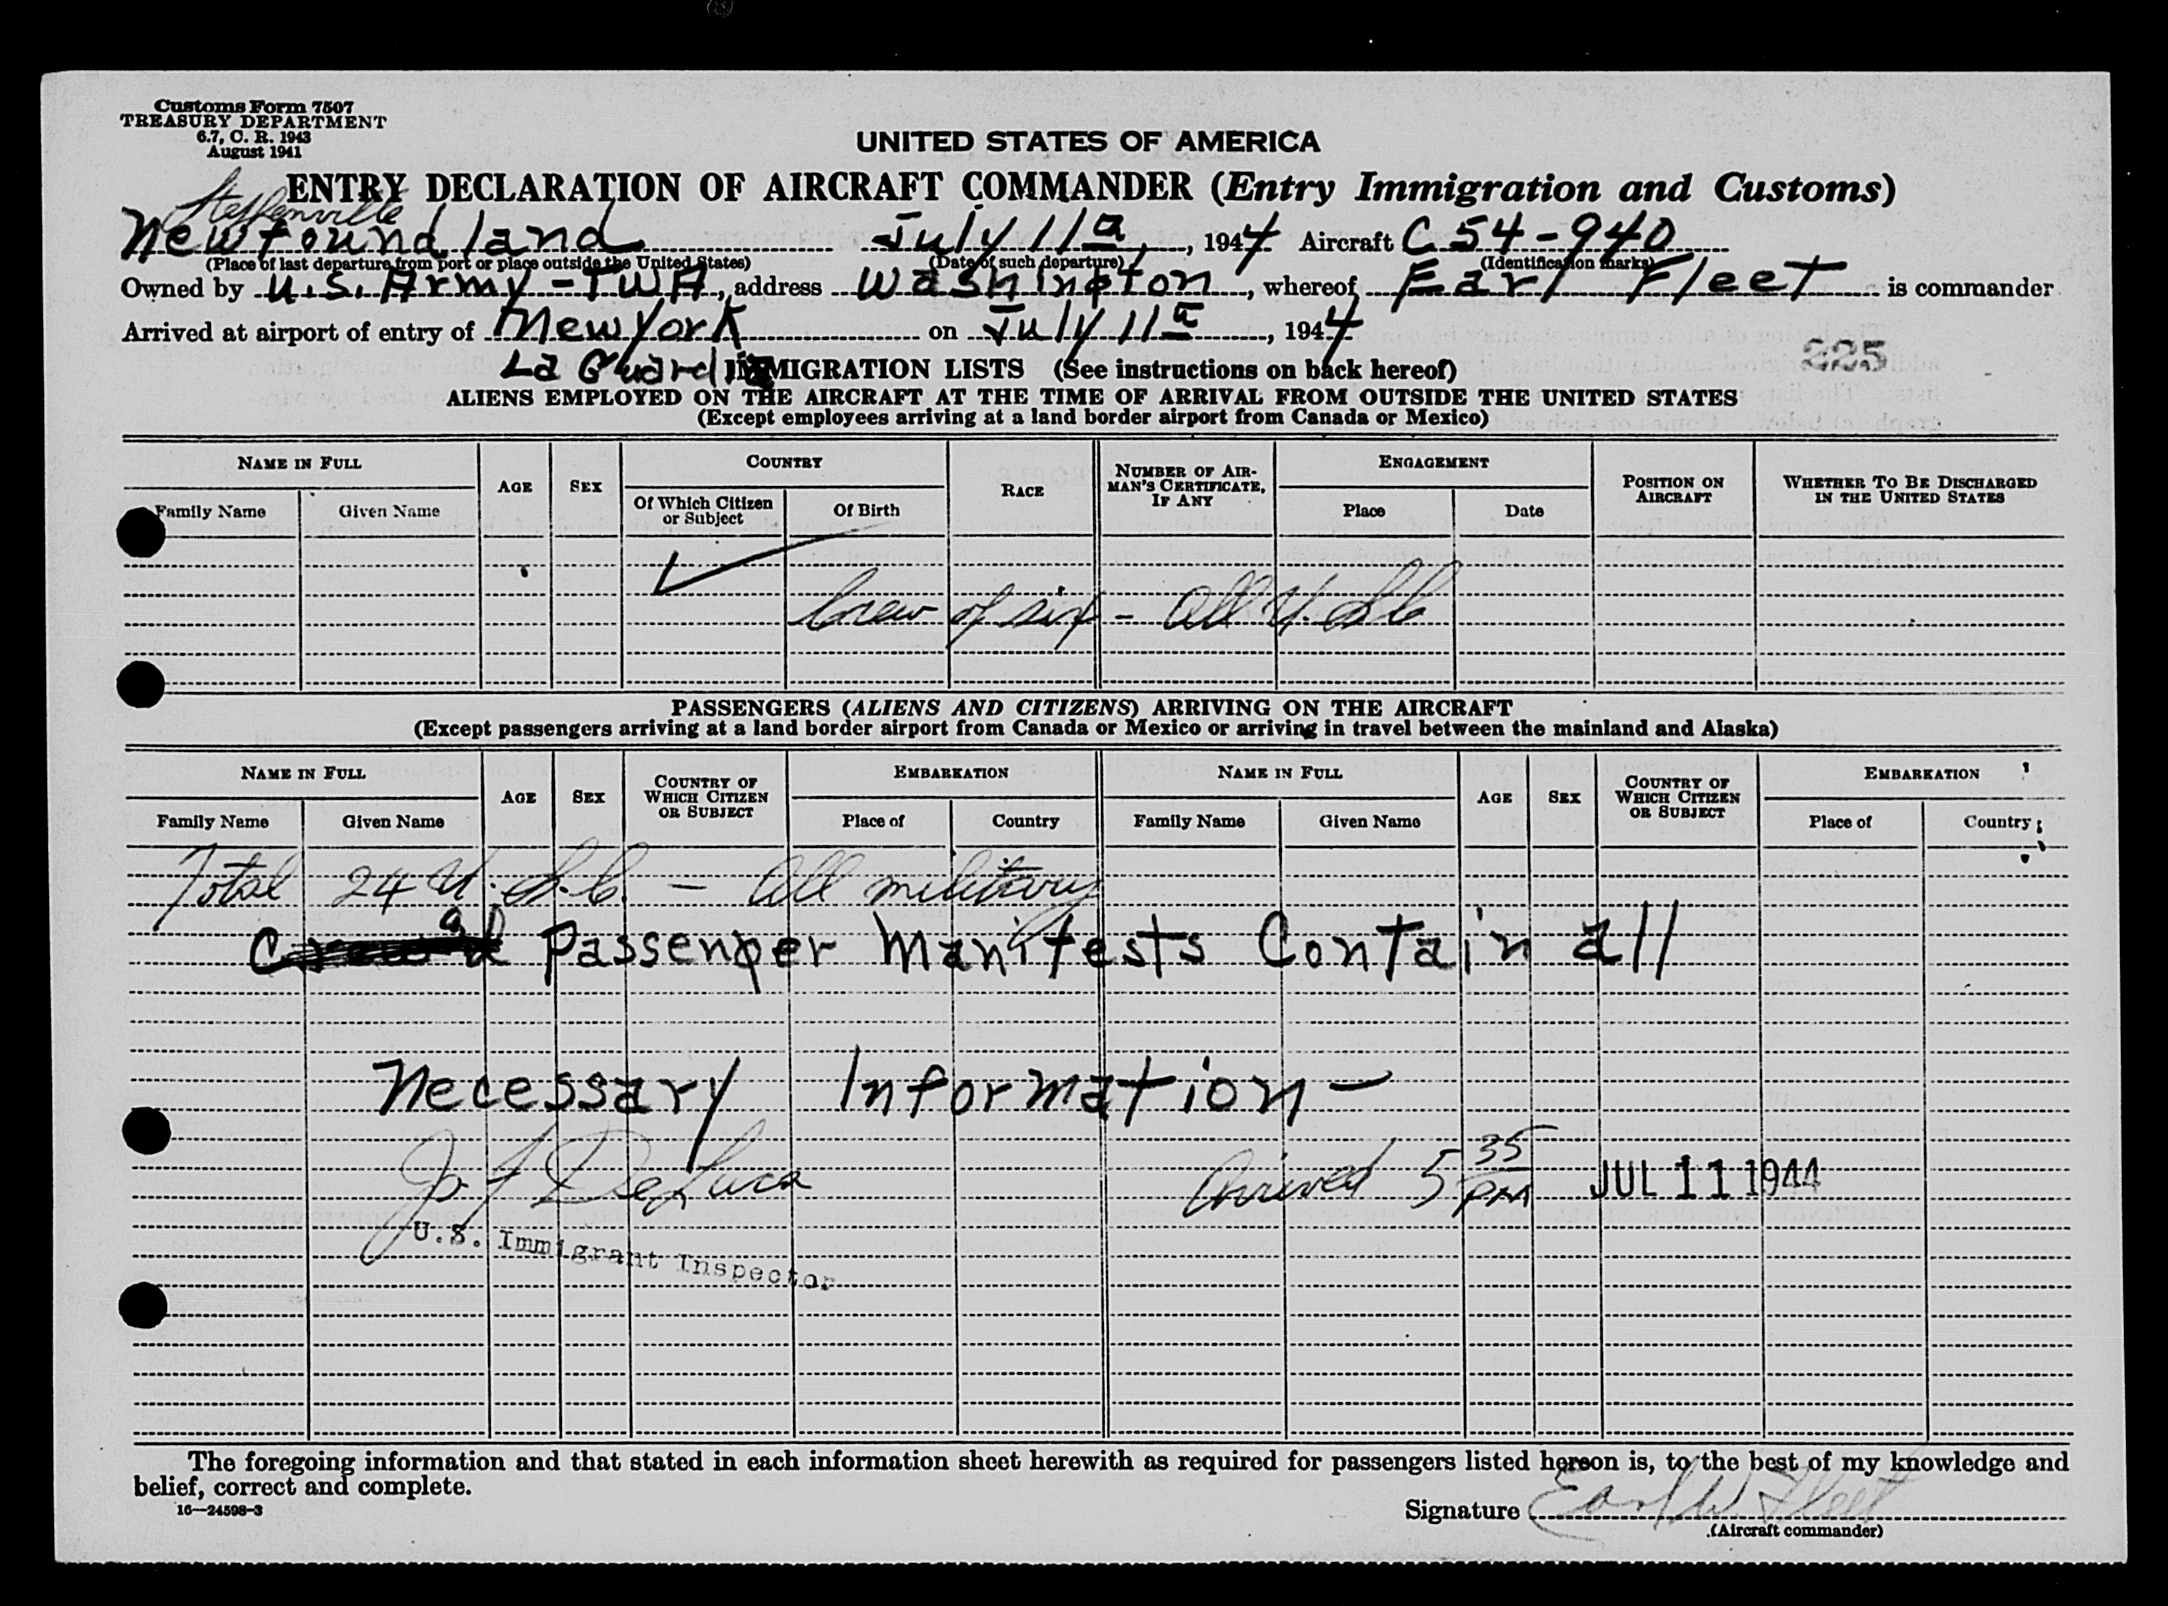 Customs Form 7507
TREASURY DEPARTMENT
6.7, C. R. 1943
August 1941
UNITED STATES OF AMERICA
ENTRY DECLARATION OF AIRCRAFT COMMANDER (Entry Immigration and Customs)
Stephenville
Newfoundland July 11 a, 1944 Aircraft C 54-940
(Place of last departure from port or place outside the United States) (Date of such departure) (Identification marks)
Owned by U.S. Army - TWA, address Washington, whereof Earl Fleet is commander
Arrived at airport of entry of New York on July 11 a, 1944
La Guardia
225
IMMIGRATION LISTS (See instructions on back hereof)
ALIENS EMPLOYED ON THE AIRCRAFT AT THE TIME OF ARRIVAL FROM OUTSIDE THE UNITED STATES
(Except employees arriving at a land border airport from Canada or Mexico)
NAME IN FULL AGE SEX COUNTRY RACE NUMBER OF AIR-MAN'S CERTIFICATE, IF ANY ENGAGEMENT POSITION ON AIRCRAFT WHETHER TO BE DISCHARGED IN THE UNITED STATES
Family Name Given Name Of Which Citizen or Subject Of Birth Place Date
Crew of six - All U.S.C
PASSENGERS (ALIENS AND CITIZENS) ARRIVING ON THE AIRCRAFT
(Except passengers arriving at a land border airport from Canada or Mexico or arriving in travel between the mainland and Alaska)
NAME IN FULL AGE SEX COUNTRY OF WHICH CITIZEN OR SUBJECT EMBARKATION NAME IN FULL AGE SEX COUNTRY OF WHICH CITIZEN OR SUBJECT EMBARKATION
Family Name Given Name Place of Country Family Name Given Name Place of Country
Total 24 U.S.C. - All military
Passenger Manifests Contain all
Necessary Information -
DeLuca
Arrived 5 35 PM JUL 11 1944
U.S. Immigrant Inspector
The foregoing information and that stated in each information sheet herewith as required for passengers listed hereon is, to the best of my knowledge and
belief, correct and complete.
16—24598-3
Signature Earl W. Fleet
(Aircraft commander)